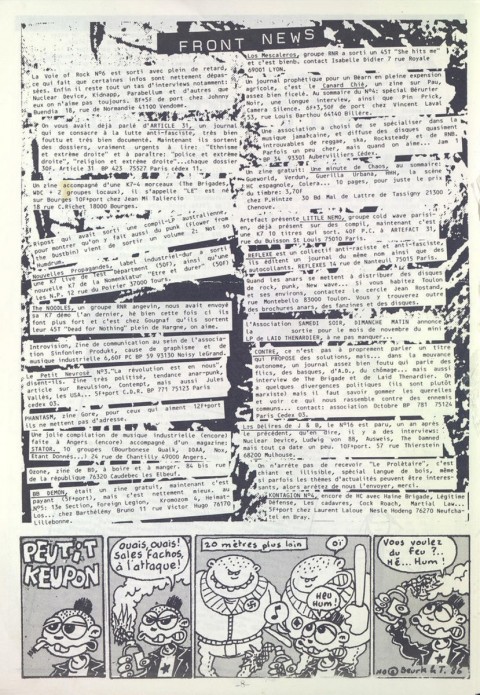 FRONT NEWS
La Voie of Rock N°6 est sorti avec plein de retard,
ce qui fait que certaines infos sont nettement dépas-
sées. Enfin il reste tout un tas d'interviews notamment:
Nuclear Device, Kidnapp, Parabellum et d'autres que
eux on n'aime pas toujours. 8F+5F de port chez Johnny
Buendia 18, rue de Normandie 41100 Vendome.
On vous avait déjà parlé d'ARTICLE 31, un journal
qui se consacre à la lutte anti-fasciste, très bien
foutu et très bien documenté. Maintenant ils sortent
des dossiers, vraiment urgents à lire: "Ethnisme
et extrême droite" et à paraître: "Police et extrême
droite", "religion et extrême droite"...chaque dossier
30F. Article 31 BP 423 75527 Paris cédex 11.
Un zine accompagné d'une K7-4 morceaux (The Brigades,
WDC + 2 groupes locaux), il s'appelle "LE" est né
sur Bourges 10F+port chez Jean Mi Taliercio
18 rue C.Richet 18000 Bourges.
Ripost qui avait sorti une compil-LP australienne,
démontrer qu'on y fait aussi du punk (Flower
the Dustbin) vient de sortir un volume 2: Not so
Nouvelles Propagandes, label industriel-dur a sorti
une K7 live de Test Department (35F) ainsi qu'une
nouvelle K7 de la Nomenklatur "Etre et durer" (50F).
Les N.P. 12 rue du Poirier 37000 Tours.
The NOODLES, un groupe RNR angevin, nous avait envoyé
sa K7 démo l'an dernier, hé bien cette fois ci ils
font plus fort et c'est chez Gougnaf qu'ils sortent
leur 45T "Dead for Nothing" plein de Hargne, on aime.
Introvision, Zine de communication au sein de l'associa-
tion Sinfonien Produkt, cause de graphisme et
musique industrielle 6,60F PC BP 59 93130 Noisy leGrand.
Le Petit Nevrosé N°3."La révolution est en nous"
disent-ils. Zine très politisé, tendance anar-punk,
article sur Revulsion, Contempt, mais aussi Jules
Vallès, les USA... 5F+port C.D.R. BP 771 75123 Paris
cedex 03.
PHANTASM, zine Gore, pour ceux qui aiment 12F+port
ils ne mettent pas d'adresse.
Une jolie compilation de musique industrielle (encore)
faite à Angers (encore) accompagné d'un magazine:
STATOR, 10 groupes (Bourbonese Qualk, DDAA, Nox,
Etant Donnés,...) 24 rue de Chantilly 49000 Angers.
Ozone, zine de BD, à boire et à manger. 84 bis rue
de la république 76320 Caudebec les Elbeuf.
BB DEMON, était un zine gratuit, maintenant c'est
payant (5F+port), mais c'est nettement mieux. Au
N°5: 13e Section, Foreign Legion, Kromozom 4, Heimat-
Los... chez Barthélémy Bruno 11 rue Victor Hugo 76170
Lillebonne.
Los Mescaleros, groupe RNR a sorti un 45T "She hits me"
et c'est bienb. contact Isabelle Bidier 7 rue Royale
69001 LYON.
Un journal prophétique pour un Béarn en pleine expension
agricole, c'est le Canard Chié, un zine sur Pau,
assez bien ficelé. Au sommaire du N°4: spécial Bérurier
Noir, une longue interview, ainsi que Mr. Prick,
Camera Silence. 6F+3,50F de port chez Vincent Laval
53, rue Louis Barthou 64140 Billère.
Une association a choisi de se spécialiser dans la
musique jamaïcaine, et diffuse des disques quasiment
introuvables de reggae, ska, Rocksteady et de RNB.
Parfois un peu cher, mais quand on aime... Jam
BP 34 93301 Aubervilliers Cédex.
Un zine gratuit: Une minute de Chaos, au sommaire:
Gueworld, Verdun, Guerilla Urbana, HHH, la scène
HC espagnole, Colera... 10 pages, pour juste le prix
du timbre: 3,70F
chez P.Hintze 30 Bd Mal de Lattre de Tassigny 21300
Chenove.
Artefact présente LITTLE NEMO, groupe cold wave parisi-
en, déjà présent sur des compil, maintenant c'est
une K7 10 titres qui sort. 40F P.C. à ARTEFACT 31,
rue du Buisson St Louis 75010 Paris.
REFLEXE est un collectif antiraciste et anti-fasciste,
ils éditent un journal du même nom ainsi que des
autocollants. REFLEXES 14 rue de Nanteuil 75015 Paris.
Quand les anars se mettent à distribuer des disques
de rock, punk, New wave... Si vous habitez Toulon
et ses environs, contactez le cercle Jean Rostand,
rue Montebello 83000 Toulon. Vous y trouverez outre
des brochures anars, des fanzines et des disques.
L'Association SAMEDI SOIR, DIMANCHE MATIN annonce
la sortie pour le mois de novembre du mini
LP de LAID THENARDIER, à ne pas manquer...
CONTRE, ce n'est pas s'exprimer parler un titre
qui PROPOSE des solutions, mais... dans la mouvance
autonome, un journal assez bien foutu qui parle de
flics, des basques, d'A.D, du chômage... mais aussi
interview de The Brigade et de Laid Thenardier. On
a quelques divergences politiques (ils sont plutôt
marxiste) mais il faut savoir gommer les querelles
et voir ce qui nous rassemble contre des ennemis
communs... contact: association Octobre BP 781 75124
Paris Cedex 03.
Les Délires de J & B, le N°16 est paru, un an après
le précédent, qu'en dire, il y a des interviews:
Nuclear Device, Ludwig von 88, Ausweis, The Damned
mais tout ça date un peu. 10F+port. 57 rue Thierstein
68200 Mulhouse.
On n'arrête pas de recevoir "Le Prolétaire", c'est
chiant et illisible, spécial langue de bois, même
si parfois les thèmes d'actualités peuvent être interes-
sants, alors arrêtez de nous l'envoyer, merci.
KONTAGION N°4, encore de HC avec Haine Brigade, Légitime
Défense, Les cadavres, Cock Roach, Martial Law...
5F+port chez Laurent Laloue Nesle Hodeng 76270 Neufcha-
tel en Bray.
PEUTiT
KEUPON
OUAIS, OUAIS!
SALES FACHOS,
À L'ATTAQUE!
20 MÈTRES PLUS LOIN
OÏ
HEU
HUM!
VOUS VOULEZ
DU FEU ?..
HÉ... HUM!